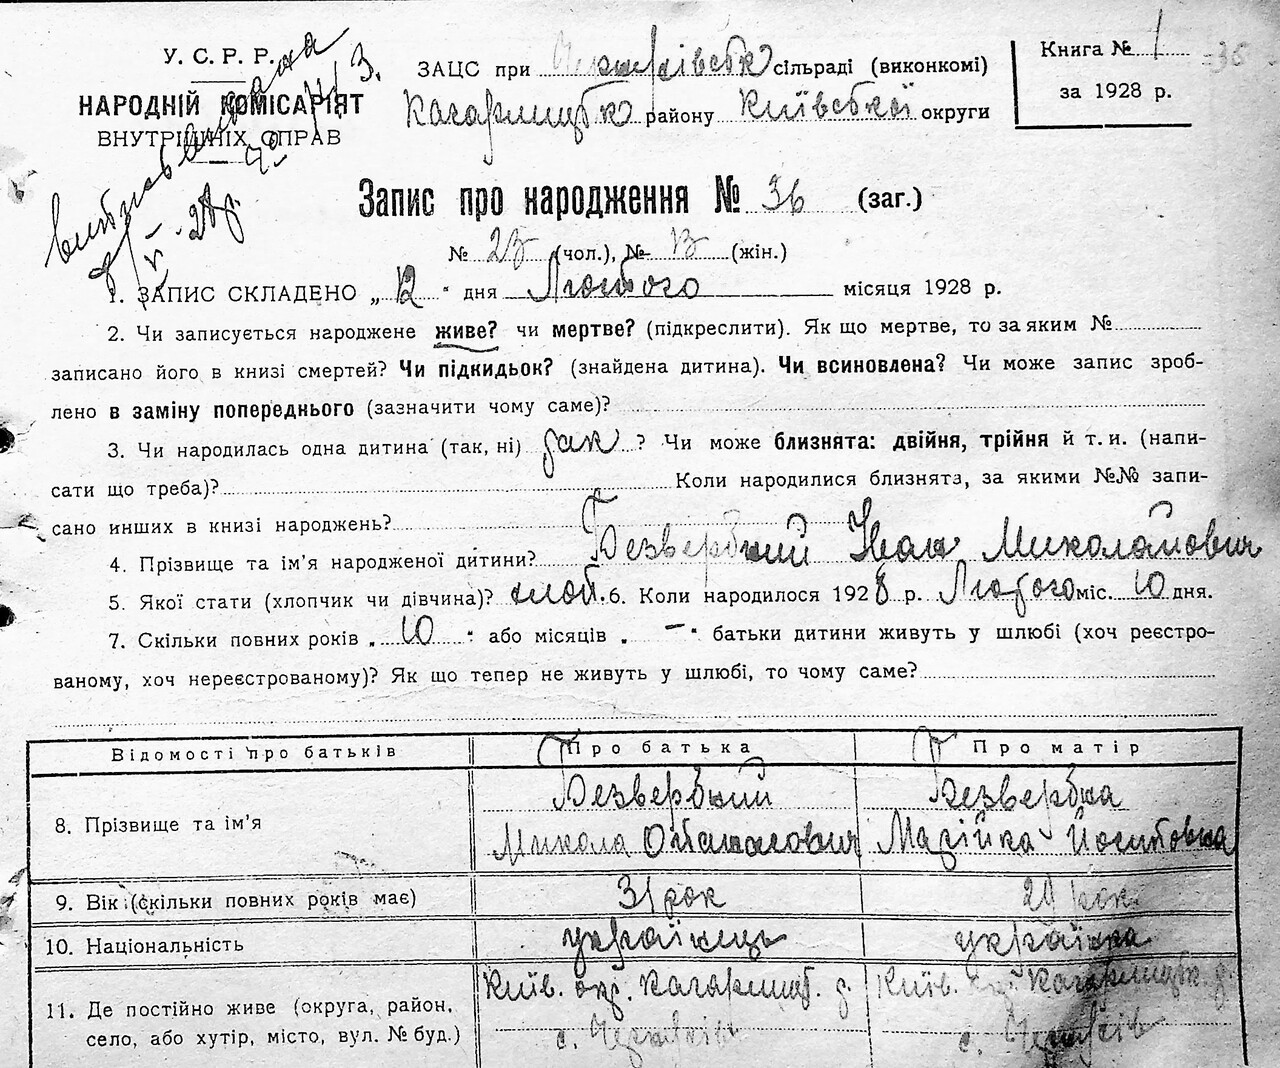 У. С. Р. Р.
НАРОДНІЙ КОМІСАРІЯТ
ВНУТРІШНІХ СПРАВ
ЗАЦС при сільраді (виконкомі)
Кагарлицьк району Київської округи
Книга № 1
за 1928 р.
36
Запис про народження № 36 (заг.)
№ 23 (чол.), № 13 (жін.)
1. ЗАПИС СКЛАДЕНО „12" дня Лютого місяця 1928 р.
2. Чи записується народжене живе? чи мертве? (підкреслити). Як що мертве, то за яким №
записано його в книзі смертей? Чи підкидьок? (знайдена дитина). Чи всиновлена? Чи може запис зроб-
лено в заміну попереднього (зазначити чому саме)?
3. Чи народилась одна дитина (так, ні) так ? Чи може близнята: двійня, трійня й т. и. (напи-
сати що треба)? Коли народилися близнята, за якими №№ запи-
сано инших в книзі народжень?
4. Прізвище та ім'я народженої дитини? Безвербний Іван Миколайович
5. Якої стати (хлопчик чи дівчина)? 6. Коли народилося 1928 р. Лютого міс. 10 дня.
7. Скільки повних років „10" або місяців „-" батьки дитини живуть у шлюбі (хоч реєстро-
ваному, хоч нереєстрованому)? Як що тепер не живуть у шлюбі, то чому саме?
Відомості про батьків Про батька Про матір
8. Прізвище та ім'я Безвербний Безвербна
Микола Опанасович Марійка Йосиповна
9. Вік (скільки повних років має) 31 рок рок
10. Національність українець українка
11. Де постійно живе (округа, район, Київ. окр. Кагарлицьк. р. Київ. окр. Кагарлицьк. р.
село, або хутір, місто, вул. № буд.) с. с.